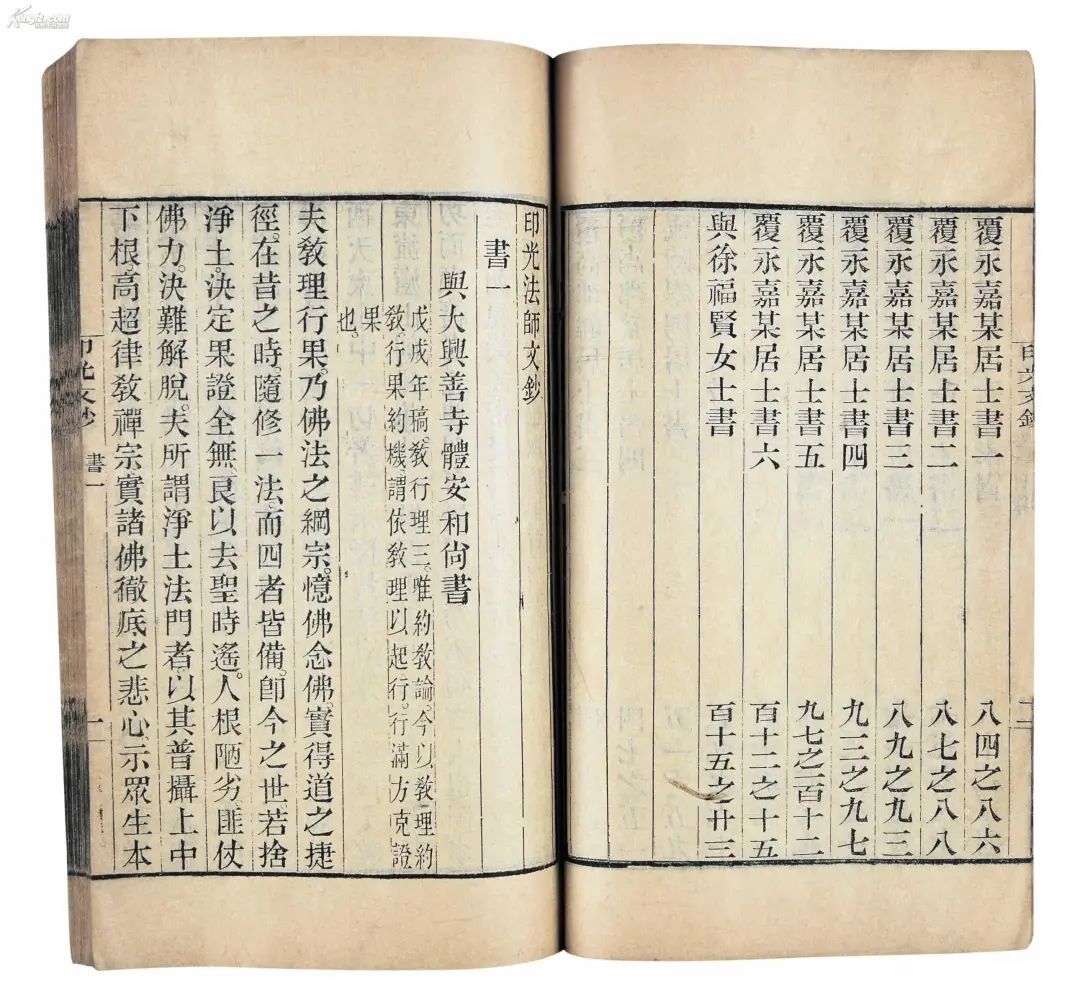 覆永嘉某居士書一 八四之八六
覆永嘉某居士書二 八七之八八
覆永嘉某居士書三 八九之九三
覆永嘉某居士書四 九三之九七
覆永嘉某居士書五 九七之百十二
覆永嘉某居士書六 百十二之十五
與徐福賢女士書 百十五之廿三
印光法師文鈔
書一
與大興善寺體安和尙書
戊戌年稿。敎行理三。唯約敎論。今以敎理約
敎行果約機。謂依敎理以起行。行滿方克證
果
也。
夫敎理行果。乃佛法之綱宗。憶佛念佛。實得道之捷
徑。在昔之時。隨修一法。而四者皆備。卽今之世。若捨
淨土。決定果證全無。良以去聖時遙。人根陋劣。匪仗
佛力。決難解脫。夫所謂淨土法門者。以其普攝上中
下根。高超律敎禪宗。實諸佛徹底之悲心。示眾生本
印光文鈔 書一 一
Kongfz.com